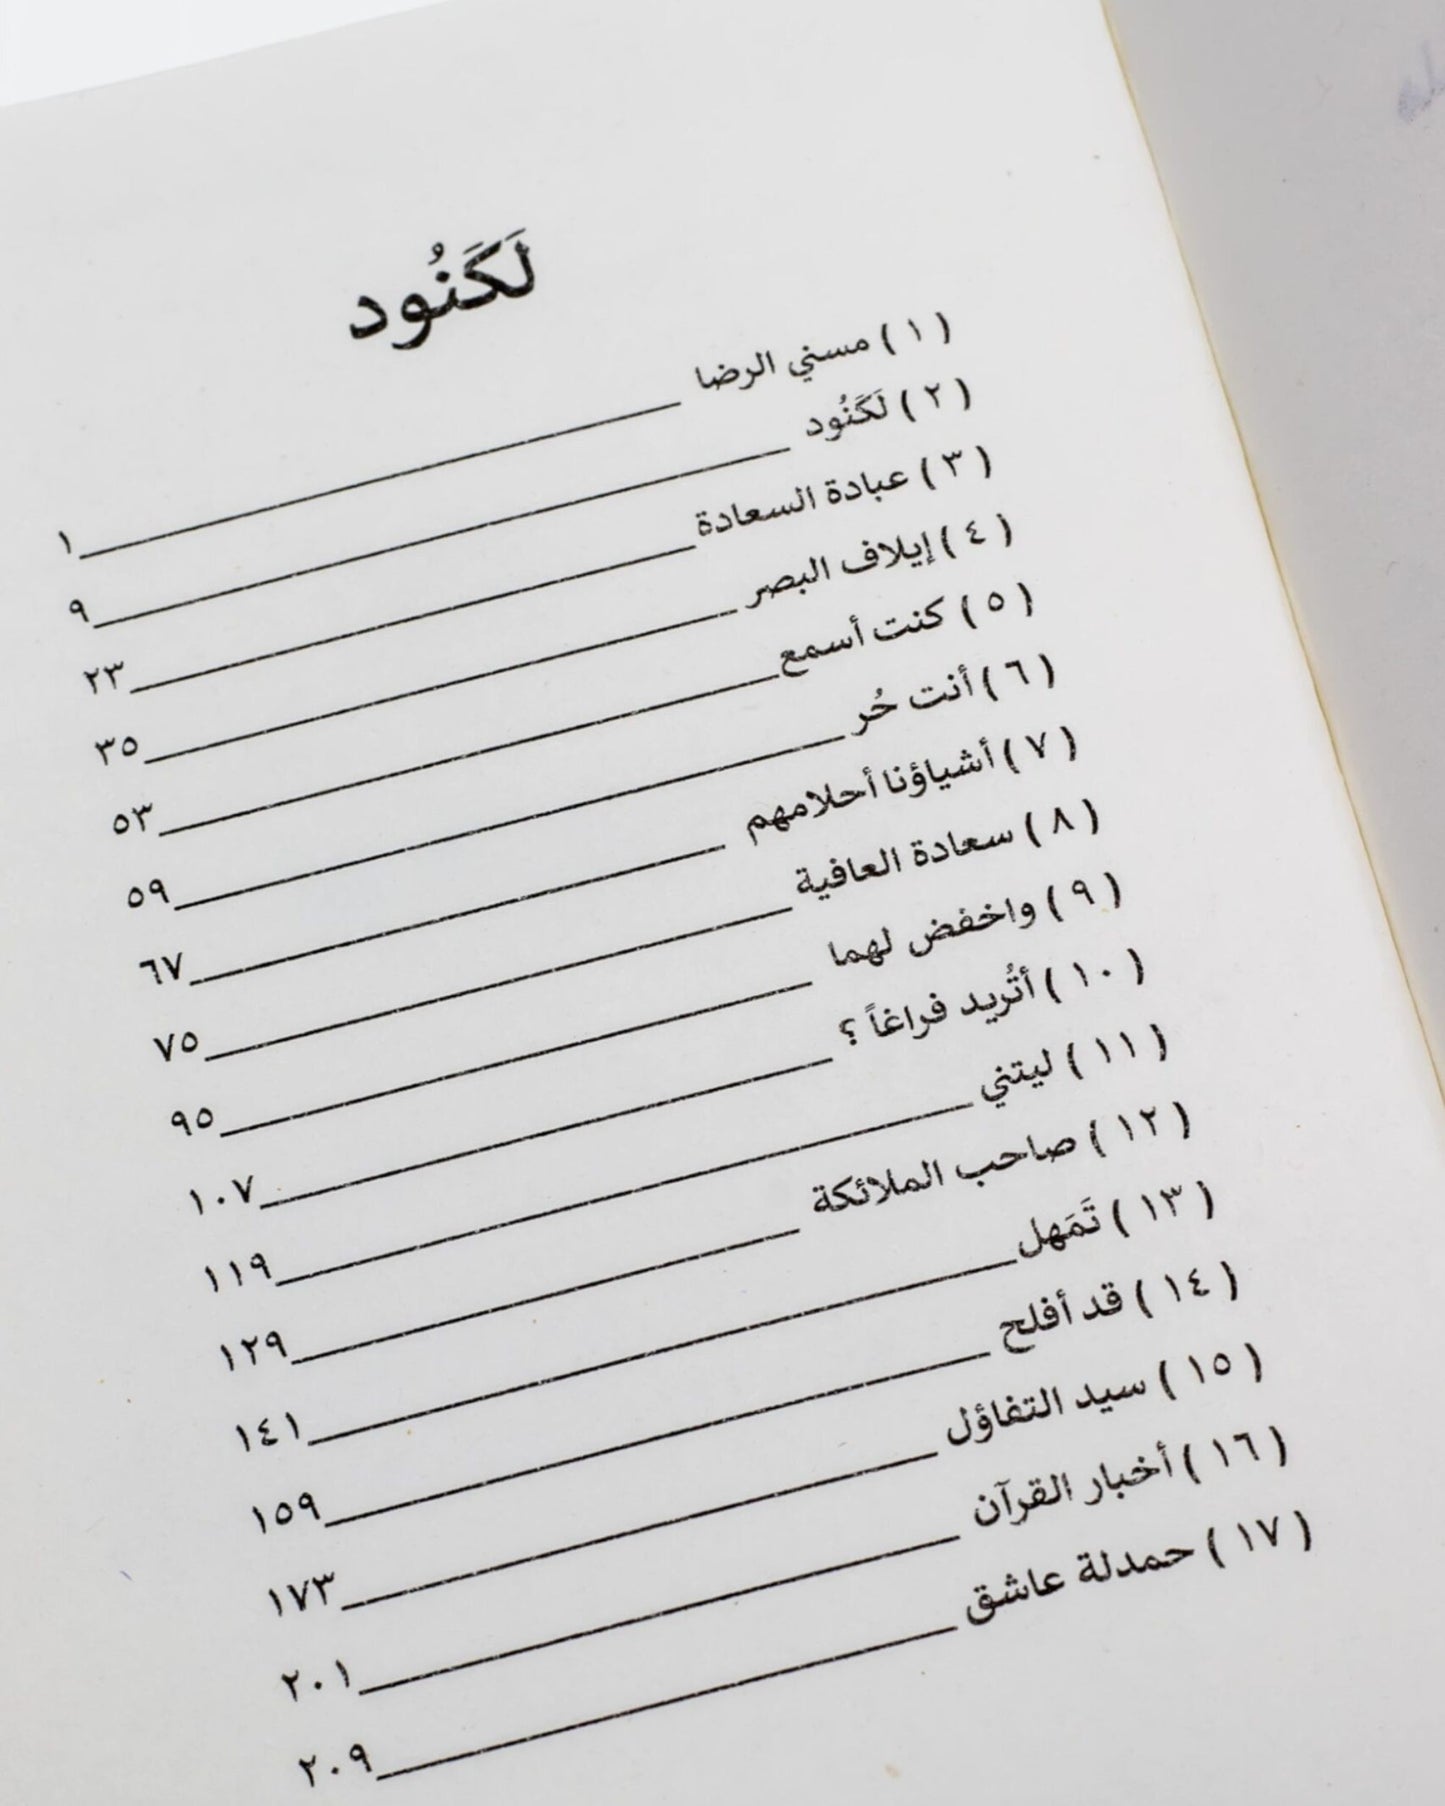 لَكَنُود
( ١ ) مسني الرضا ١
( ٢ ) لَكَنُود ٩
( ٣ ) عبادة السعادة ٢٣
( ٤ ) إيلاف البصر ٣٥
( ٥ ) كنت أسمع ٥٣
( ٦ ) أنت حُر ٥٩
( ٧ ) أشياؤنا أحلامهم ٦٧
( ٨ ) سعادة العافية ٧٥
( ٩ ) واخفض لهما ٩٥
( ١٠ ) أتُريد فراغاً ؟ ١٠٧
( ١١ ) ليتني ١١٩
( ١٢ ) صاحب الملائكة ١٢٩
( ١٣ ) تَمَهل ١٤١
( ١٤ ) قد أفلح ١٥٩
( ١٥ ) سيد التفاؤل ١٧٣
( ١٦ ) أخبار القرآن ٢٠١
( ١٧ ) حمدلة عاشق ٢٠٩